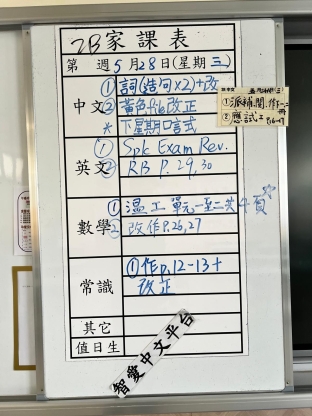 2B家課表
第 週5月28日(星期三)
中文
①詞(造句x2)+改
②黃色file改正
*下星期口試
英文
①Spk Exam Rev.
②RB P.29,30
數學
①溫工單元一至二共4頁☆
②改作P.26,27
常識
①作p.12-13+
改正
其它
值日生
智愛中文平台
①派補閱
②應試工 P.16-17